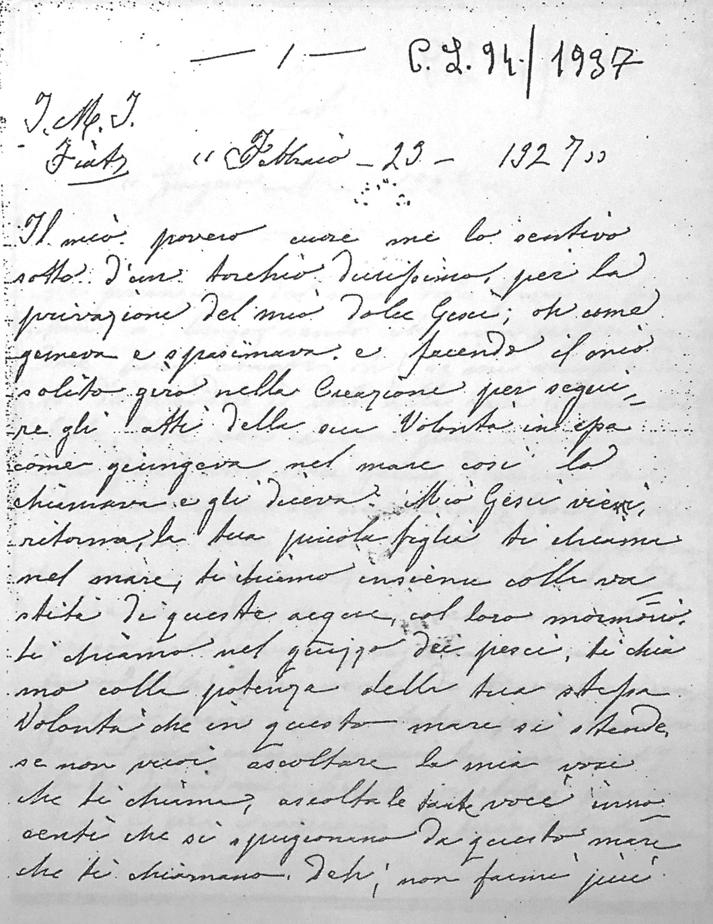 — 1 — C. L. 94/1937
J. M. J.
Fiat „ Febbraio – 23 – 1927 „
Il mio povero cuore me lo sentivo
sotto d'un torchio durissimo, per la
privazione del mio dolce Gesù; oh come
gemeva e spasimava. e facendo il mio
solito giro nella Creazione per segui=
re gli atti della sua Volontà in essa
come giungeva nel mare così lo
chiamava e gli diceva: Mio Gesù vieni,
ritorna, la tua piccola figlia ti chiama
nel mare, ti chiamo insieme colla va=
stità di queste acque, col loro mormorio.
ti chiamo nel guizzo dei pesci, ti chia
mo colla potenza della tua stessa
Volontà che in questo mare si stende,
se non vuoi ascoltare la mia voce
che ti chiama, ascolta le tante voci inno
centi che si sprigionano da questo mare
che ti chiamano. deh; non farmi più